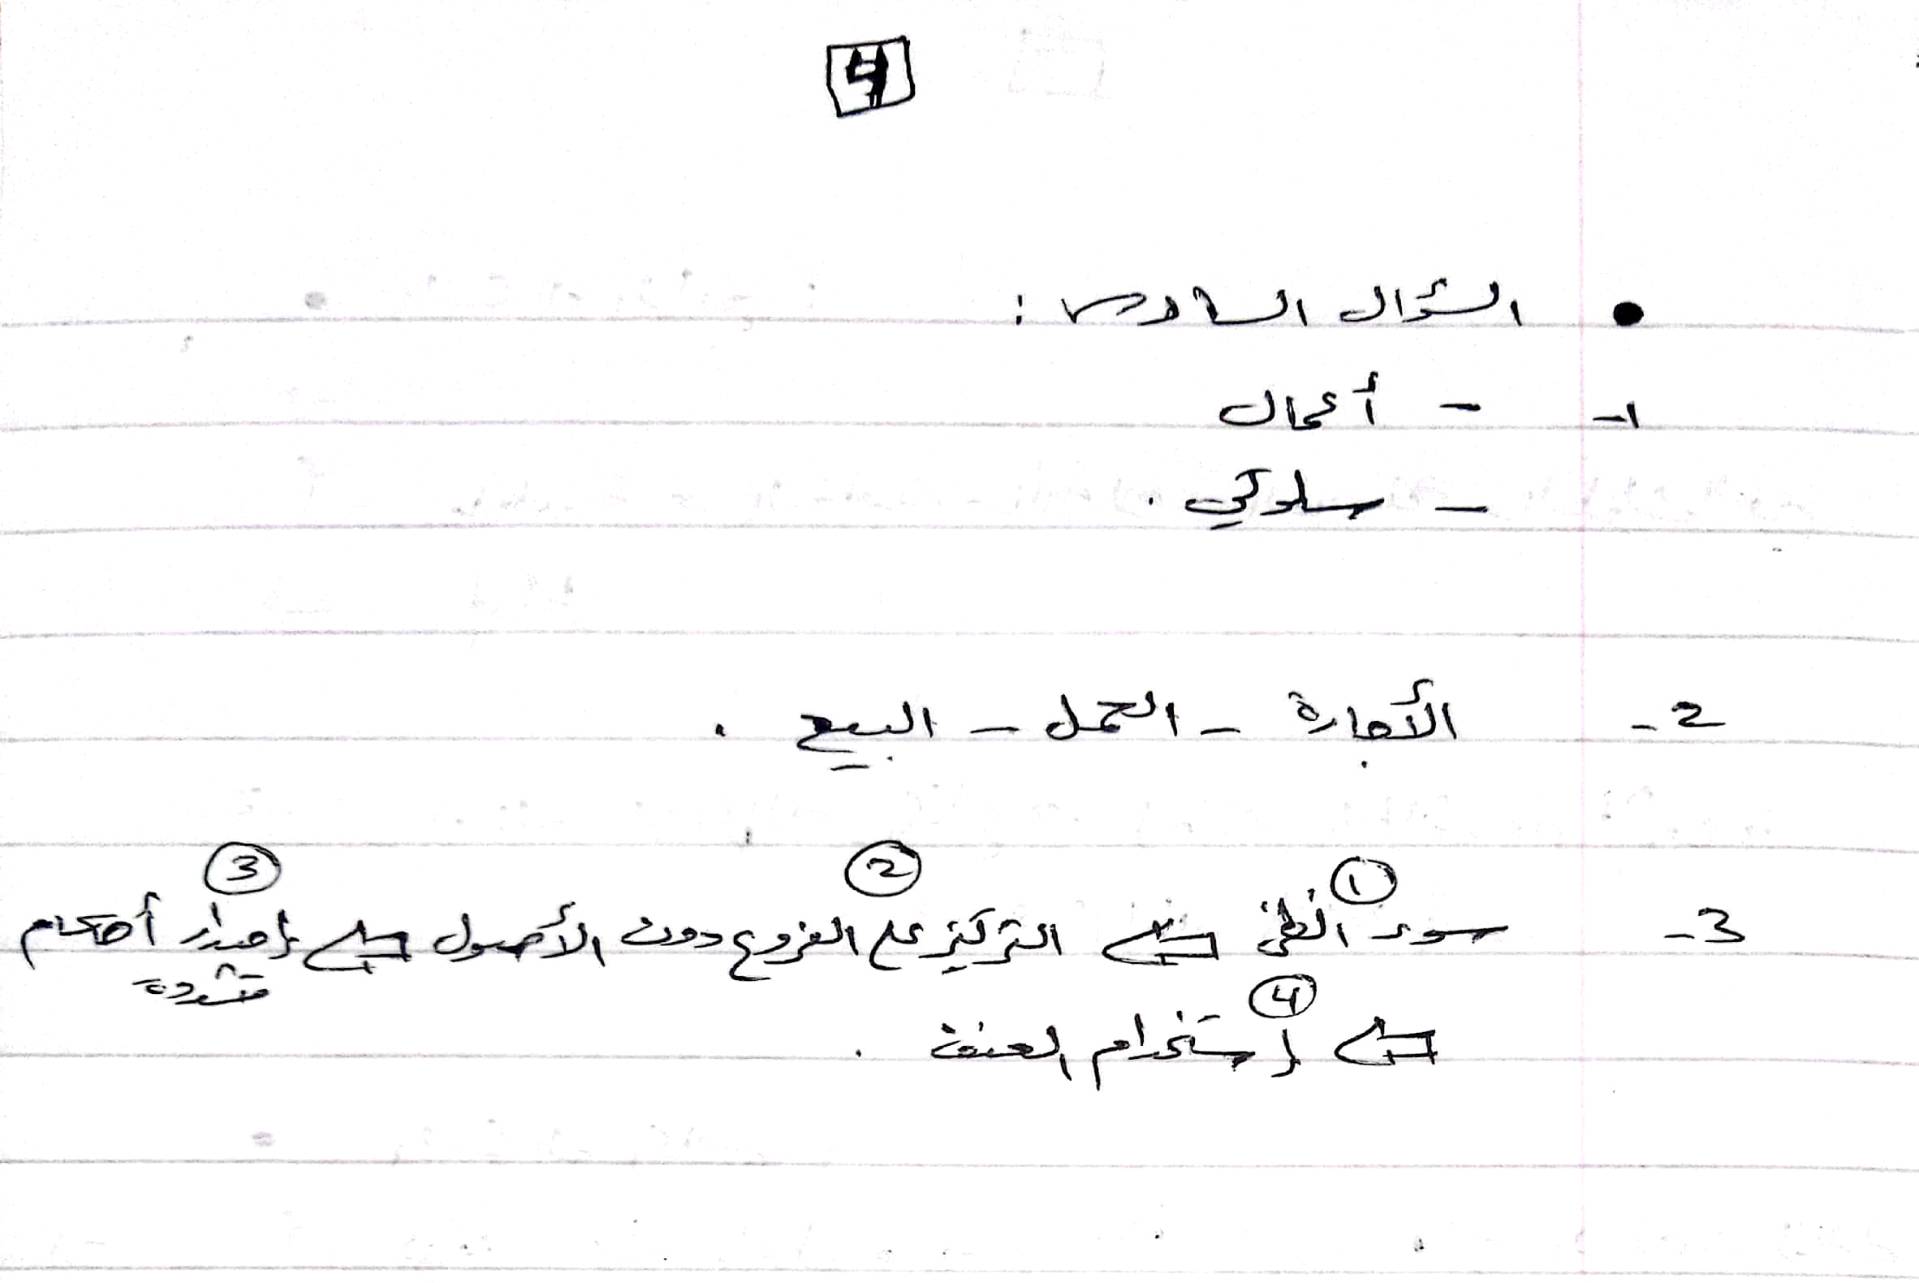 4
• السؤال السادس :
1- - أعمال
- سلوكي .
2- الأجارة - العمل - البيع .
3- ① سوء الظن ⇐ ② التركيز على الفروع دون الأصول ⇐ ③ إصدار أحكام
متشددة
⇐ ④ إستخدام العنف .